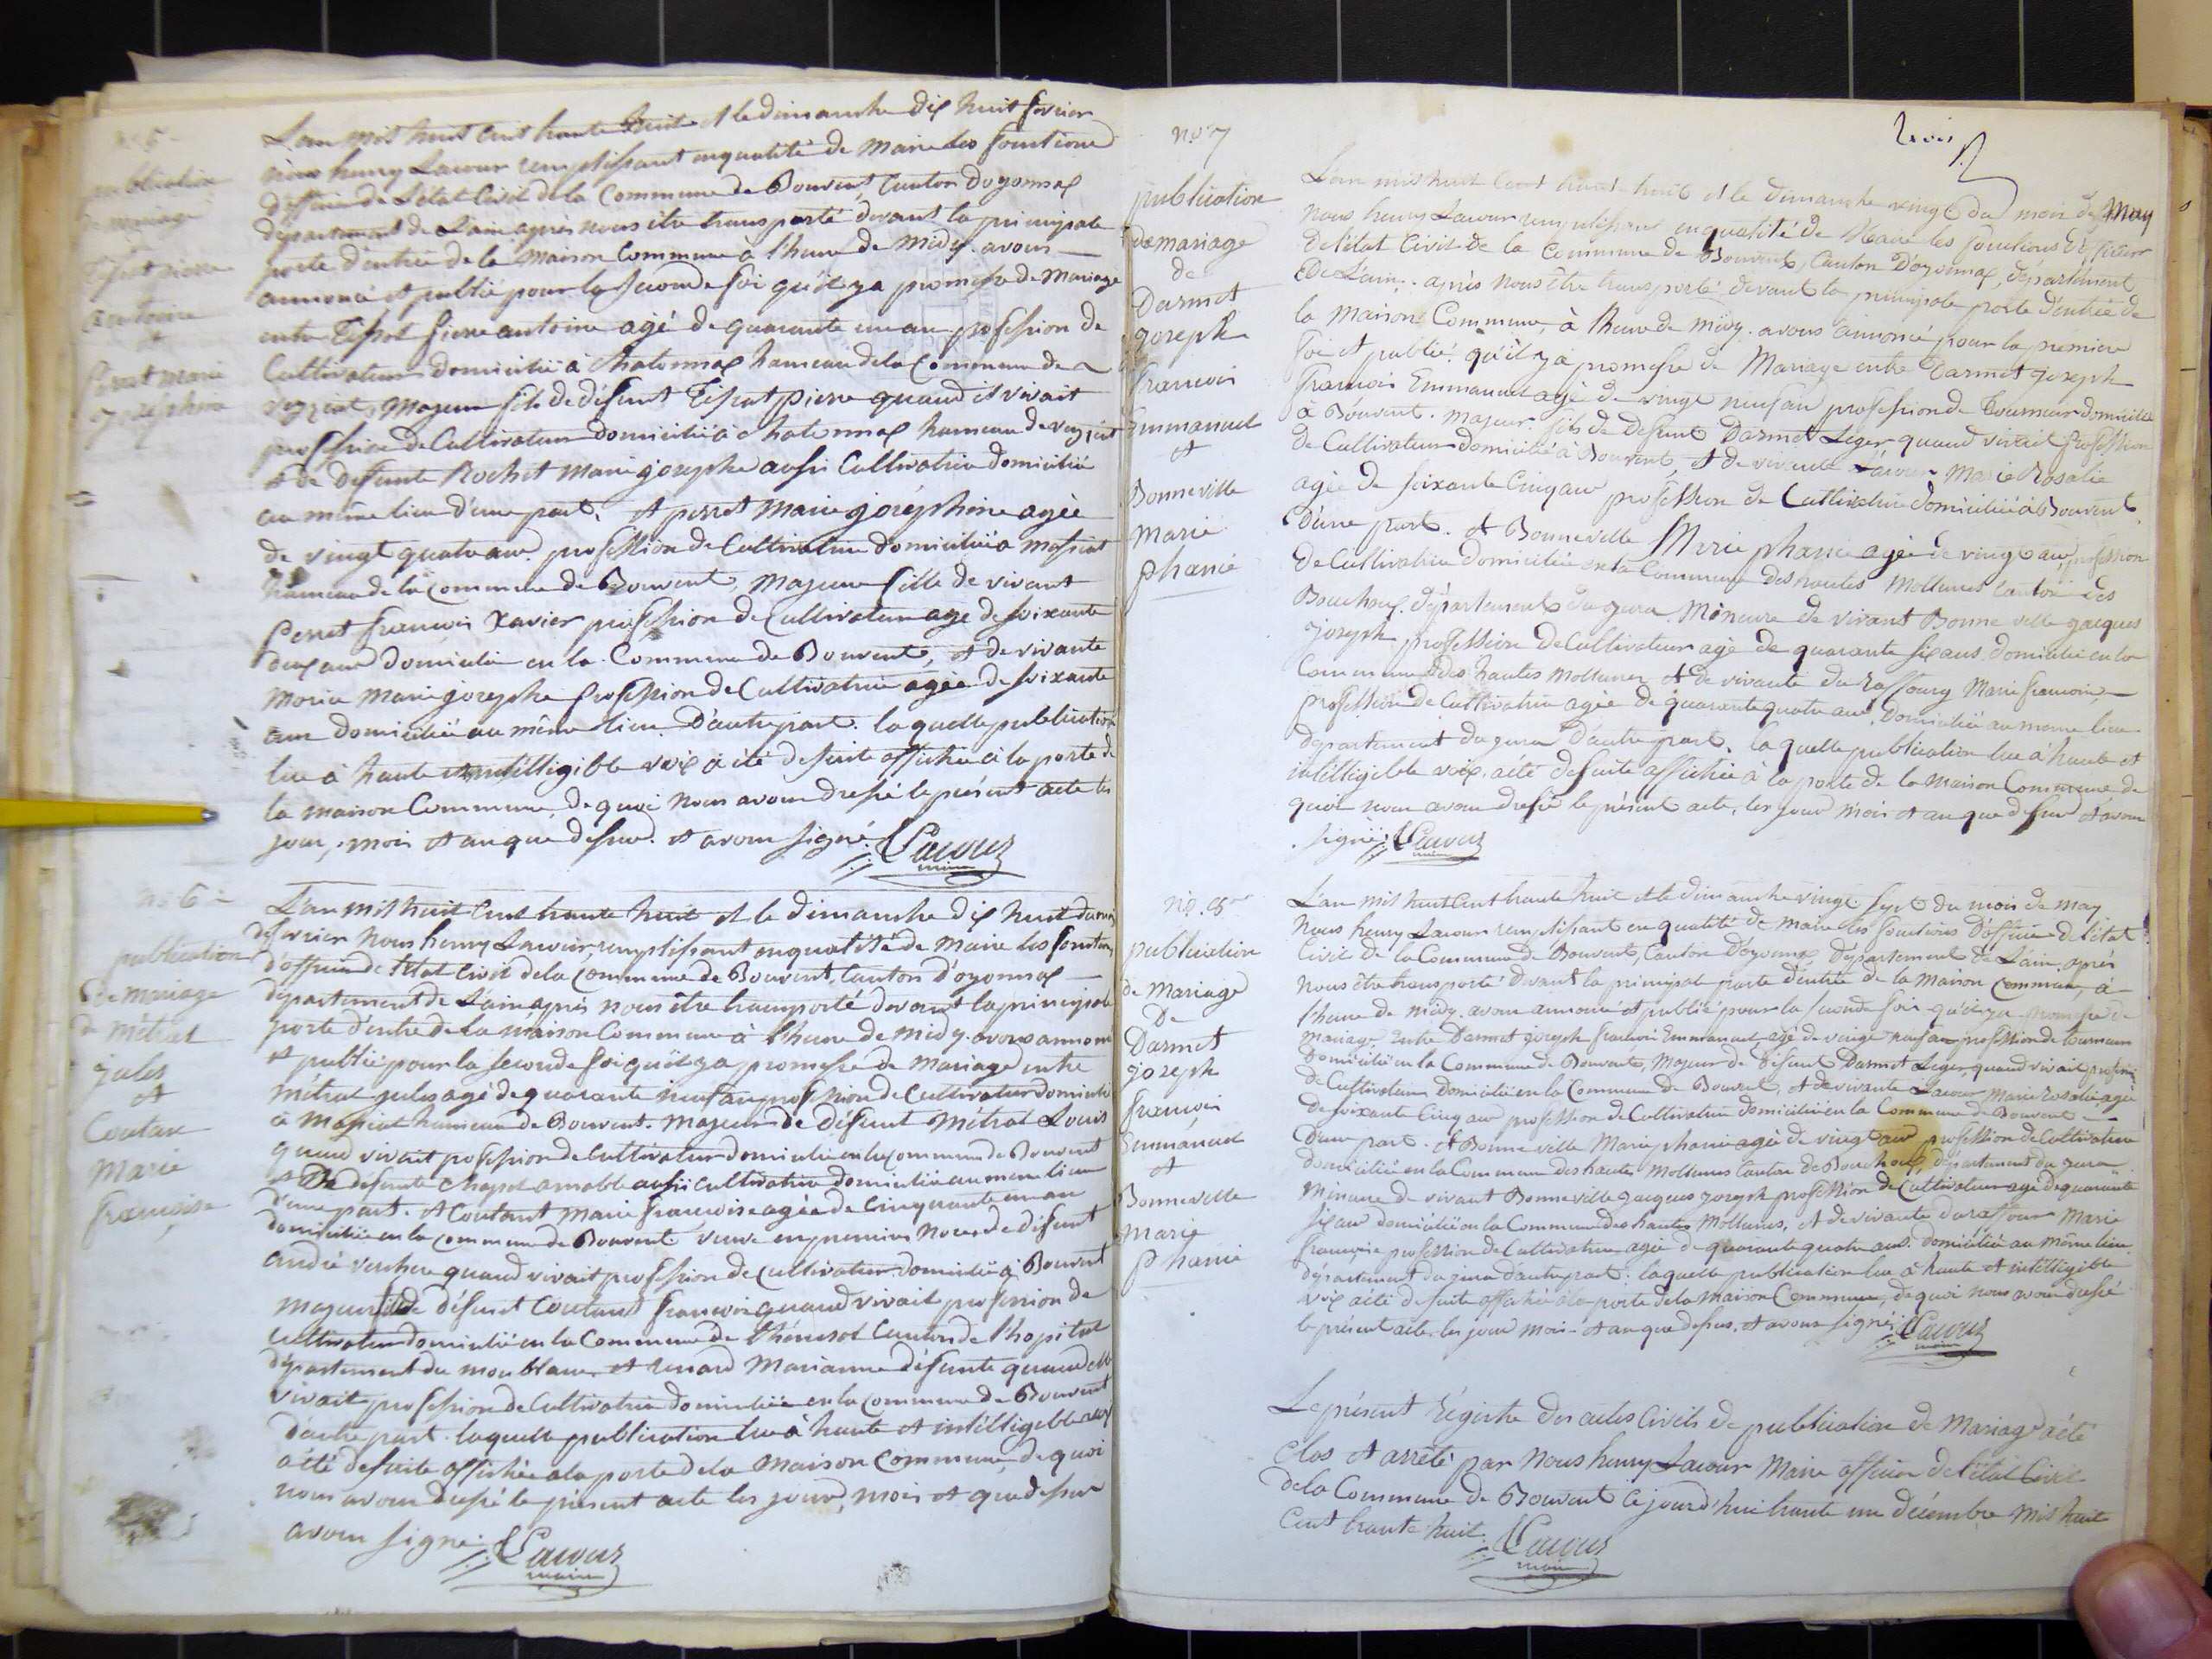 n.º 5
publication
de mariage
Tissot pierre
antoine
et
perret marie
josephine
L'an mil huit cent trente huit et le dimanche dix huit fevrier
nous henry Lacour remplissant enqualité de Maire les fonctions
d'officier de L'état Civil de la Commune de Bouvent, Canton d'oyonnax
département de L'ain, après nous être transporté devant la principale
porte d'entrée de la Maison Commune à l'heure de midy. avons
annoncé et publié pour la seconde foi qu'il y a promesse de Mariage
entre Tissot pierre antoine agé de quarante un an profession de
Cultivateur domicilié à Chatonnax hameau de la Commune de
veyziat, Majeur fils de défunt Tissot pierre quand il vivait
profession de Cultivateur domicilié à Chatonnax hameau de veyziat
et de défunte Rochet marie josephe aussi Cultivatrice domiciliée
au même lieu d'une part. et perret Marie joséphine agée
de vingt quatre ans profession de Cultivatrice domiciliée à massiat
hameau de la Commune de Bouvent, Majeure fille de vivant
Perret françois Xavier profession de Cultivateur age de soixante
deux ans domicilié en la Commune de Bouvent, et de vivante
Moria Marie josephe profession de Cultivatrice agée de soixante
ans domiciliée au même lieu D'autre part. laquelle publication
lue à haute et intélligible voix a été desuite affichée à la porte de
la maison Commune, de quoi nous avons dressé le présent acte les
jour, mois et an que dessus. et avons signé. Lacour
maire
n.º 6
publication
de mariage
de métral
jules
et
Coutan
Marie
françoise
L'an mil huit cent trente huit et le dimanche dix huit du mois
de fevrier Nous henry Lacour, remplissant enqualité de maire les fonctions
d'officier de l'état Civil de la Commune de Bouvent, Canton d'oyonnax
département de L'ain, après nous être transporté devant la principale
porte d'entrée de la maison Commune à l'heure de midy. avons annoncé
et publié pour la seconde foi qu'il y a promesse de mariage entre
métral jules agé de quarante neuf an profession de Cultivateur domicilié
à Massiat hameau de Bouvent. Majeur de défunt Métral Louis
quand vivait profession de Cultivateur domicilié en la commune de Bouvent
et De defunte Chapel amable aussi cultivatrice domiciliée au même lieu
d'une part. et Coutant Marie françoise agée de Cinquante un an
domiciliée en la Commune de Bouvent veuve en premier Noces de défunt
andré quand vivait profession de cultivateur domicilié à Bouvent
majeur fille de défunt Coutant françois quand vivait profession de
cultivateur domicilié en la Commune de Canton de l'hopital
département du mont blanc, et renard Marianne défunte quand elle
vivait profession de Cultivatrice domiciliée en la Commune de Bouvent
d'autre part. laquelle publication lue à haute et intélligible voix
a été desuite affichée à la porte de la Maison Commune, de quoi
nous avons dressé le présent acte les jour, mois et que dessus
avons signé. Lacour
maire
trois
n.º 7
publication
de mariage
de
Darmet
joseph
francois
Emmanuel
et
Bonneville
Marie
phanie
L'an mil huit cent trente huit et le dimanche vingt du mois de May
nous henry Lacour remplissant enqualité de Maire les fonctions d'officier
de l'état Civil de la Commune de Bouvent, Canton D'oyonnax, département
De L'ain. après nous être transporté devant la principale porte d'entrée de
la Maison Commune, à l'heure de midy. avons annoncé pour la premiere
foi et publié. qu'il y a promesse de Mariage entre Darmet joseph
francois Emmanuel agé de vingt neuf an profession de Tourneur domicilié
à Bouvent. majeur. fils de Defunt Darmet Leger quand vivait profession
de Cultivateur domicilié à Bouvent, et de vivante Lacour Marie Rosalie
agée de soixante Cinq ans profession de Cultivatrice domiciliée à Bouvent
D'une part. et Bonneville Marie phanie agée de vingt ans, profession
de Cultivatrice domiciliée en la Commune des hautes Mollunes Canton des
Bouchoux. département du jura. Mineure de vivant Bonneville jacques
joseph profession de Cultivateur agé de quarante six ans domicilié en la
Commune des hautes mollunes et de vivante Duraffourg Marie francoise
profession de Cultivatrice agée de quarante quatre ans, Domiciliée au meme lieu
département du jura D'autre part. laquelle publication lue à haute et
intélligible voix. a été desuite affichée à la porte de la Maison Commune de
quoi nous avons dressé le présent acte, les jour mois et an que dessus et avons
signé. Lacour
maire
n.º 8
publication
de Mariage
De
Darmet
joseph
francois
Emmanuel
et
Bonneville
Marie
Phanie
L'an mil huit Cent trente huit et le dimanche vingt sept du mois de may
Nous henry Lacour remplissant en qualité de maire les fonctions D'officier de L'état
Civil de la Commune de Bouvent, Canton d'oyonnax, Département de L'ain. après
Nous être transporté devant la principale porte d'entrée de la Maison Commune, à
l'heure de midy. avons annoncé et publié pour la seconde foi qu'il y a promesse de
mariage entre Darmet joseph francois Emmanuel agé de vingt neuf an profession de tourneur
domicilié en la Commune de Bouvent, Majeur de Défunt Darmet Leger, quand vivait profession
de Cultivateur Domicilié en la Commune de Bouvent, et de vivante Lacour Marie rosalie agée
de soixante Cinq ans profession de Cultivatrice domiciliée en la Commune de Bouvent
D'une part. et Bonneville Marie phanie agée de vingt ans profession de Cultivatrice
domiciliée en la Commune des hautes Mollunes Canton de Bouchoux, département du jura
Mineure de vivant Bonneville jacques joseph profession de Cultivateur agé de quarante
six ans domicilié en la Commune des hautes Mollunes, et de vivante Duraffour Marie
françoise profession de Cultivatrice agée de quarante quatre ans. domiciliée au même lieu
département du jura d'autre part. laquelle publication lue à haute et intélligible
voix a été desuite affichée à la porte de la Maison Commune, de quoi nous avons dressé
le présent acte les jour mois et an que dessus. et avons signé. Lacour
maire
Le présent Régistre des actes Civils de publication de Mariage a été
Clos et arrêté par Nous henry Lacour Maire officier de l'état Civil
de la Commune de Bouvent Cejourd'hui trente un décembre mil huit
Cent trente huit. Lacour
maire